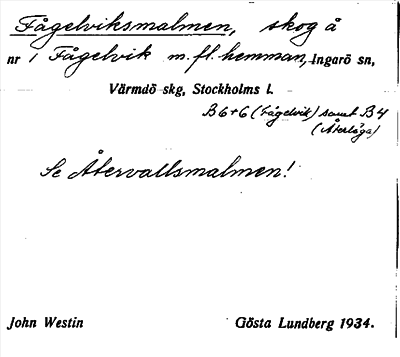 Fågelviksmalmen, skog å
nr 1 Fågelvik m.fl. hemman, Ingarö sn,
Värmdö skg, Stockholms l.
B6+6 (Fågelvik) samt B4
(Återlöga)
Se Återvallsmalmen!
John Westin Gösta Lundberg 1934.